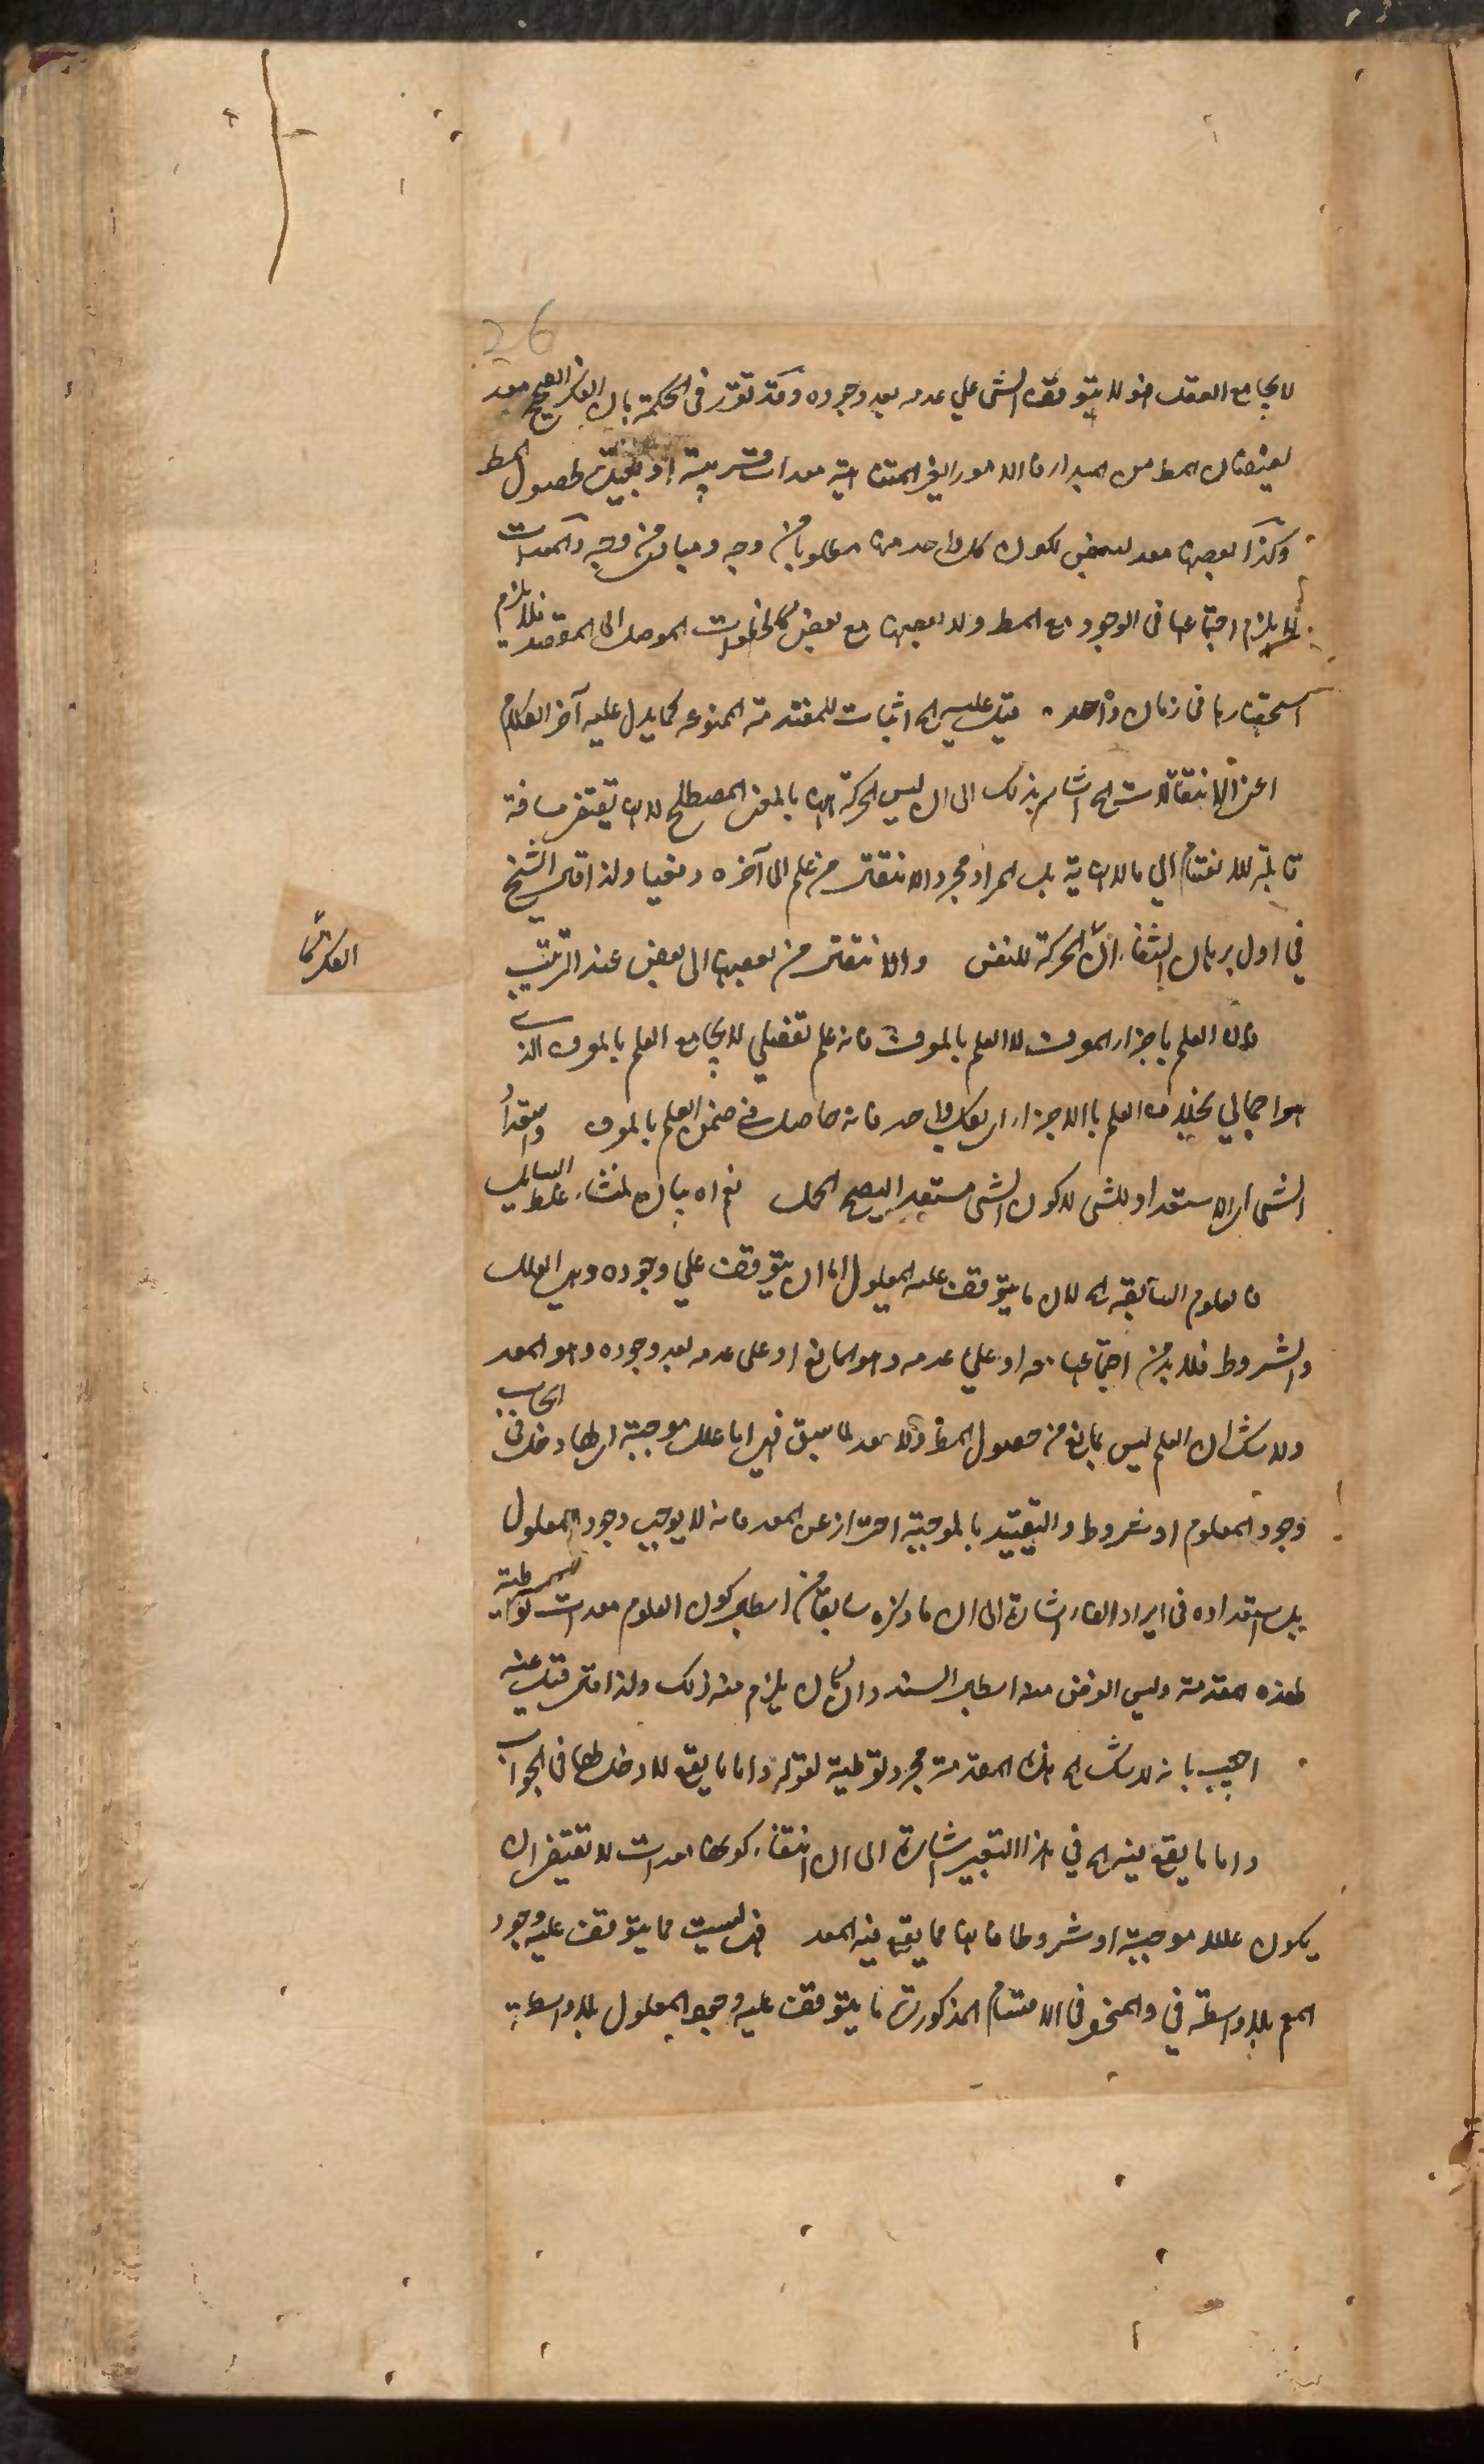 26
لا يجامع العقد هو لا يتوقف الشي علي عدمه بعد وجوده وقد تقرر في الحكمة بان الفكر الصحيح معد
لفيضان المط من المبدا فالامور الغير المتناهية معدات قريبة او بعيدة لحصول المط
وكذا بعضها معد لبعض لكون كل واحد منها مطلوبا من وجه ومبادي من وجه والمعدات
لا يلزم اجتماعها في الوجود مع المط ولا بعضها مع بعض كالخطوات الموصلة الى المقصد فلا يلزم
استحضارها في زمان واحد قيل عليه الخ اثبات للمقدمة الممنوعة كما يدل عليه آخر الكلام
اعني الانتقالات الخ اشار بذلك الى ان ليس الحركة ههنا بالمعنى المصطلح لانها تقتضي مسافة
قابلة للانقسام الي ما لا نهاية بل المراد مجرد الانتقال من علم الى آخره دفعيا ولذا قال الشيخ
في اول برهان الشفاء ان الحركة للنفس والانتقال من بعضها الى بعض عند الترتيب
فان العلم باجزاء المعرف لا العلم بالمعرف فانه علم تفصيلي لا يجامع العلم بالمعرف الذي
هو اجمالي بخلاف العلم بالاجزاء اي بكل واحد فانه حاصل في ضمن العلم بالمعرف واستعداد
الشي اي الاستعداد للشي لا كون الشي مستعدا ليصح الحمل نعم اه بيان لمنشاء غلط السائل
فالعلوم السابقة الخ لان ما يتوقف عليه المعلول اما ان يتوقف علي وجوده وهي العلل
والشروط فلا بد من اجتماعها معه او علي عدمه وهو المانع او على عدمه بعد وجوده وهو المعد
ولا شك ان العلم ليس بمانع من حصول المط ولا معد لما سبق فهي اما علل موجبة اي لها دخل في ايجاب
وجود المعلوم او شروط والتقييد بالموجبة احتراز عن المعد فانه لا يوجب وجود المعلول
بل استعداده في ايراد الفاء اشارة الى ان ما ذكره سابقا من ابطال كون العلوم معدات توطية
لهذه المقدمة وليس الغرض منه ابطال السند وان كان يلزم منه ذلك ولذا قال قيل عنه
اجيب بانه لا شك الخ هذه المقدمة مجرد توطية لقوله واما ما يقع لا دخل لها في الجواب
واما ما يقع فيه الخ في هذا التعبير اشارة الى ان انتفاء كونها معدات لا تقتضي ان
يكون عللا موجبة او شروطا فانها مما يقع فيه المعد فهي ليست مما يتوقف عليه وجود
المع بلا واسطة في والمنحصر في الاقسام المذكورة ما يتوقف عليه وجود المعلول بلا واسطة